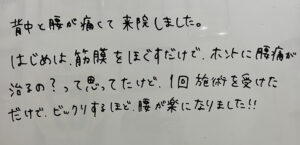 背中と腰が痛くて来院しました。
はじめは、筋膜をほぐすだけで、ホントに腰痛が
治るの？って思ってたけど、1回施術を受けた
だけで、ビックリするほど、腰が楽になりました!!